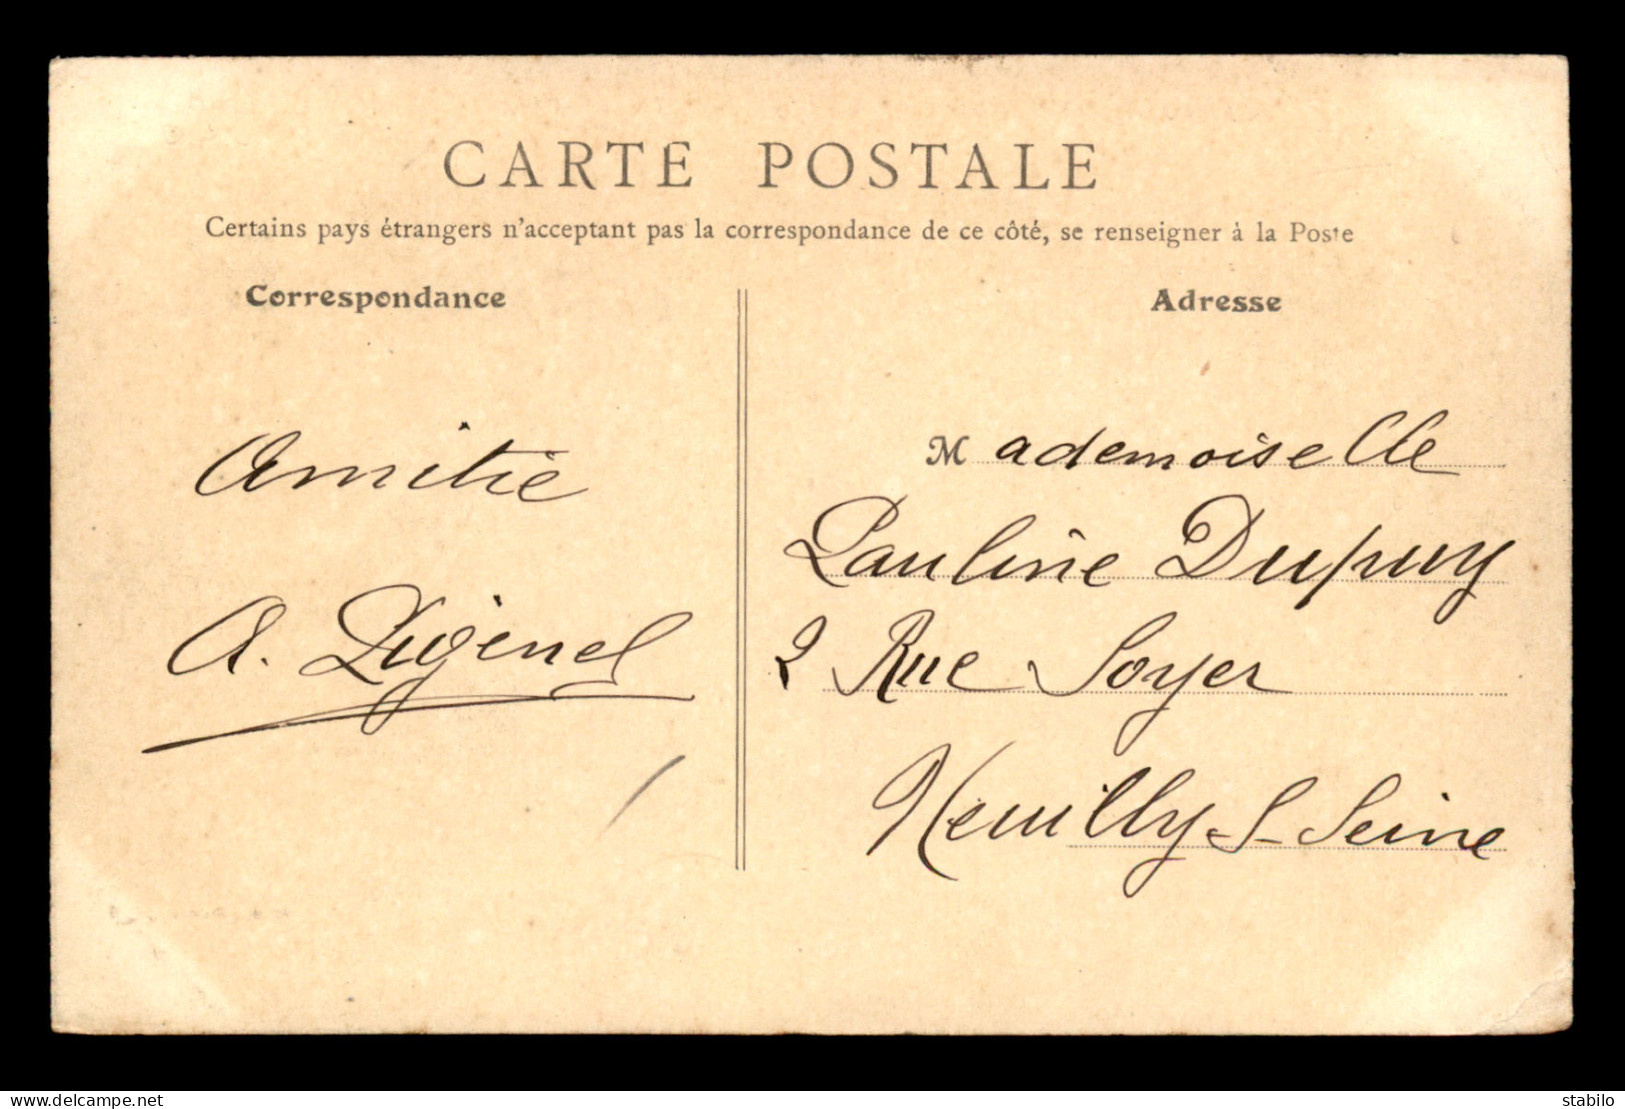 CARTE POSTALE
Certains pays étrangers n'acceptant pas la correspondance de ce côté, se renseigner à la Poste
Correspondance
Amitié
A.
Adresse
Mademoiselle
Pauline Dupuy
2 Rue Soyer
Neuilly-S-Seine
delcampe.net
stabilo